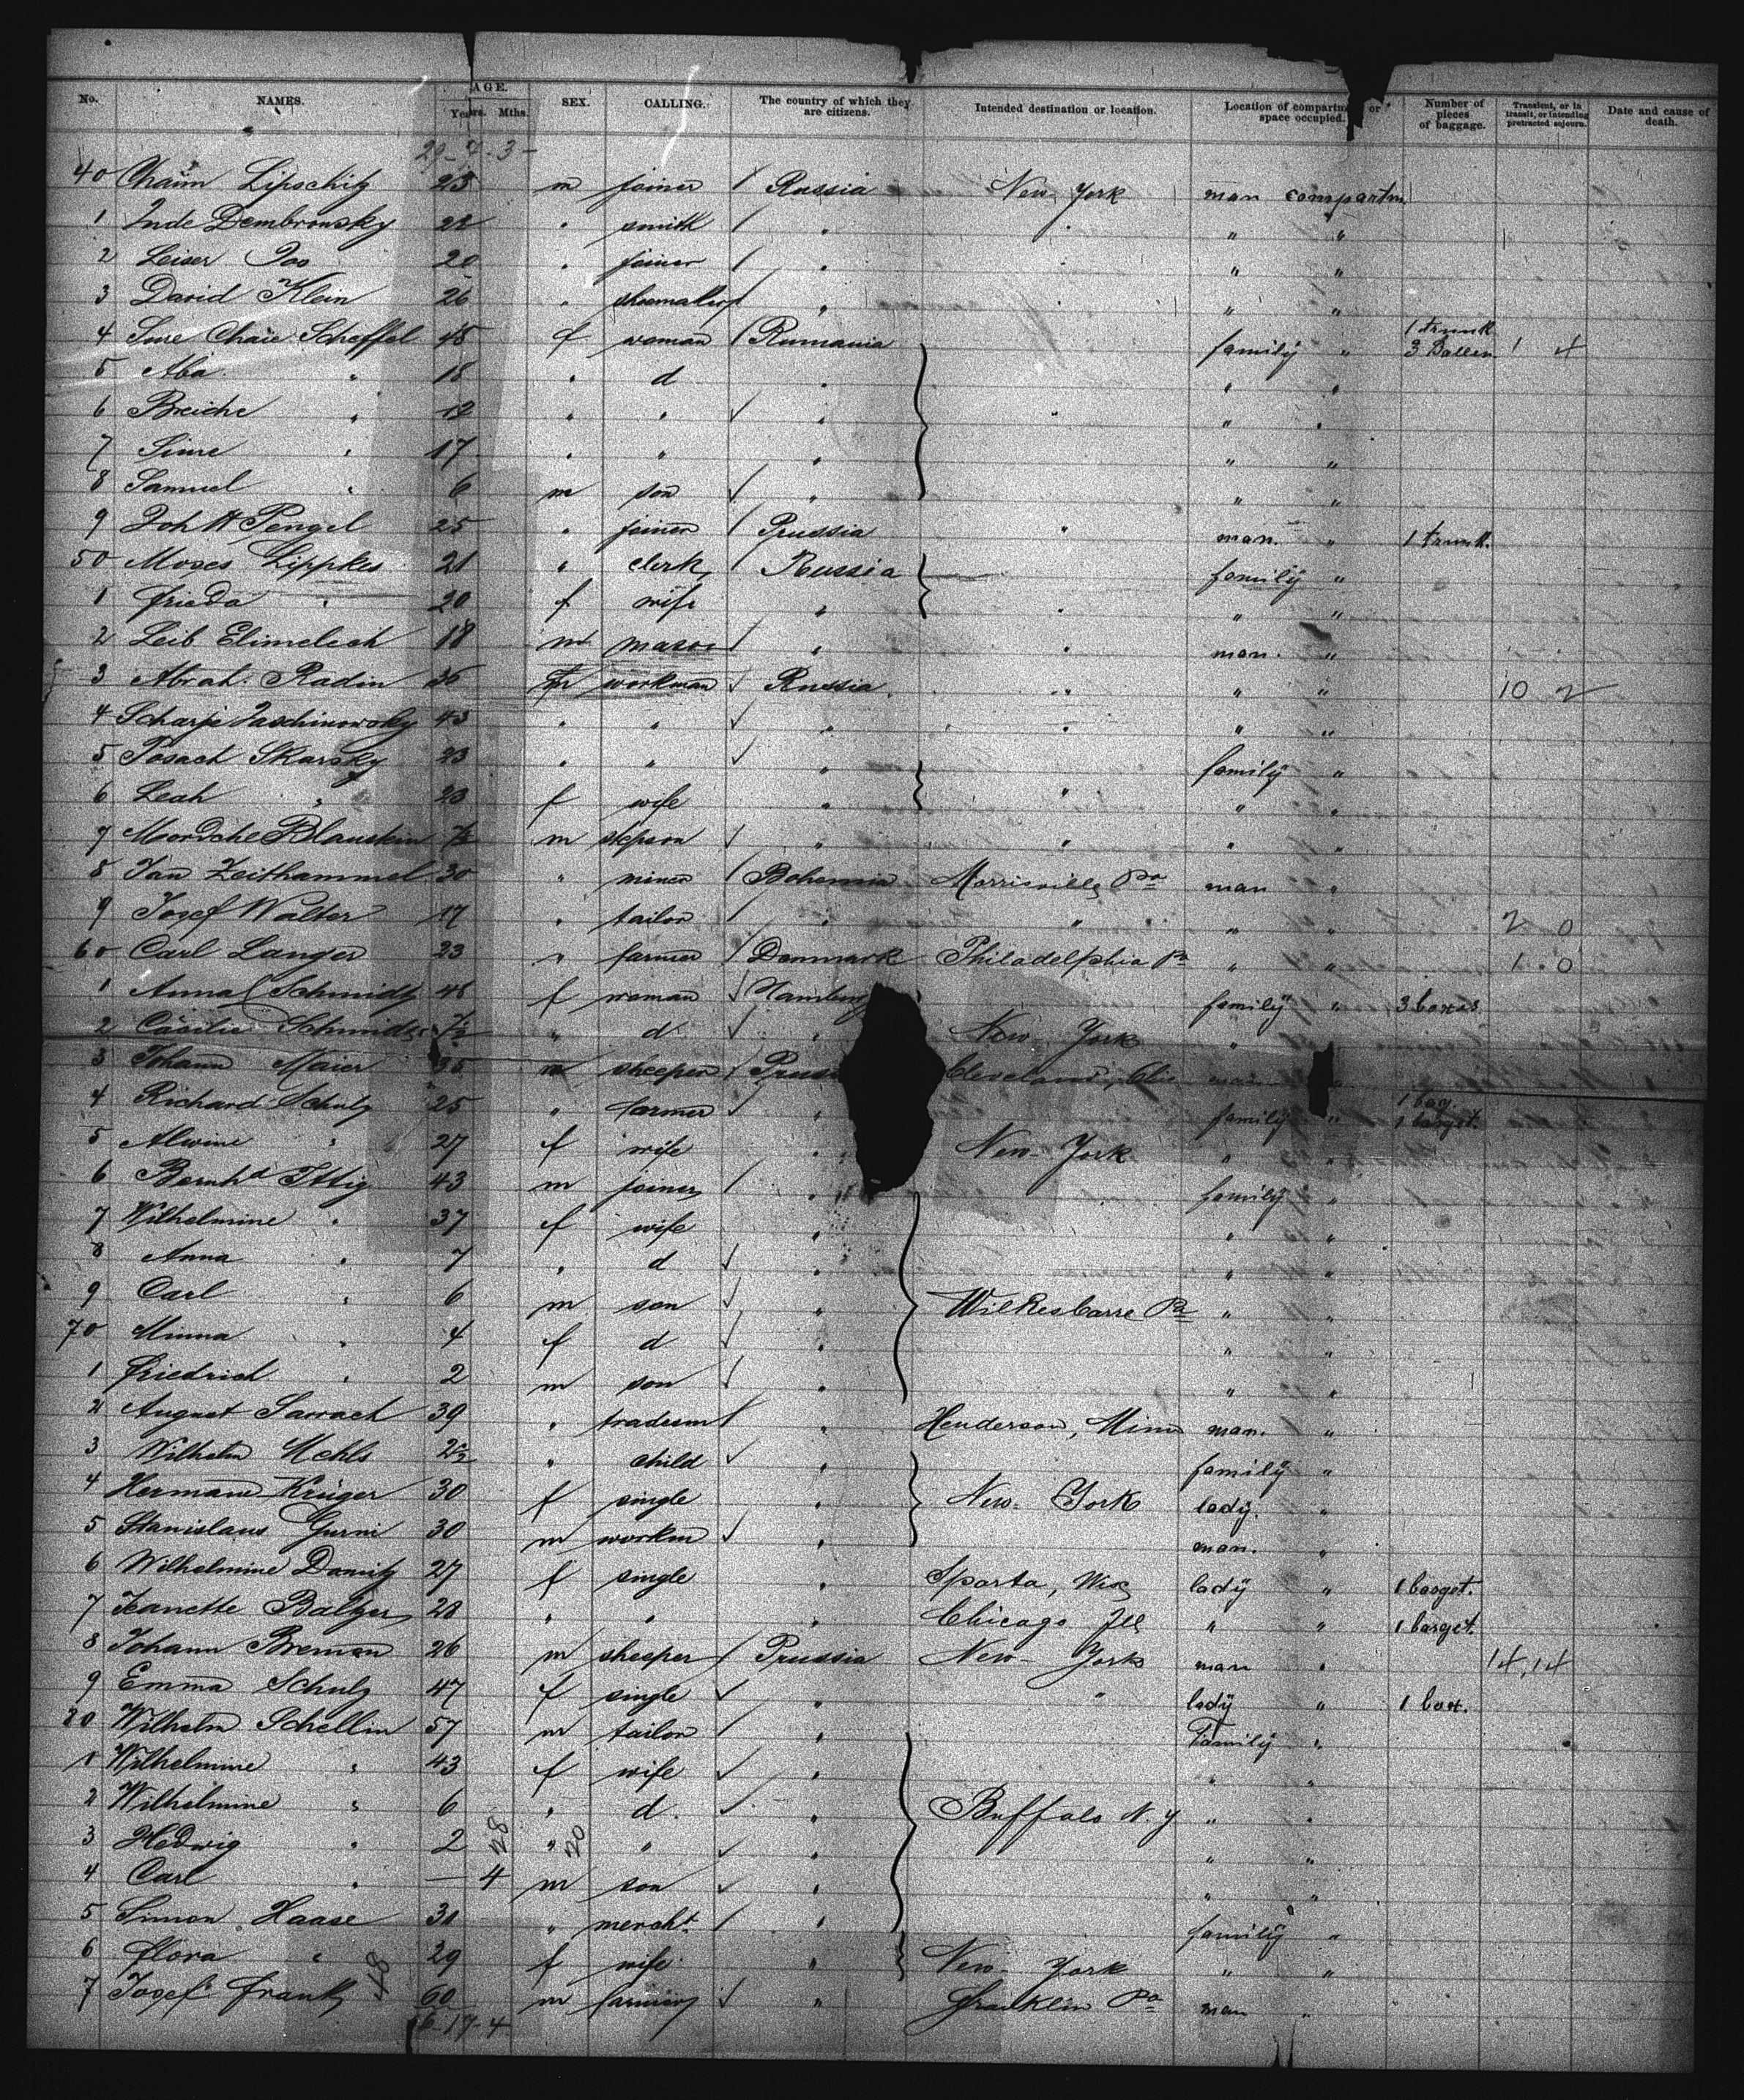 No. NAMES. AGE. Years. Mths. SEX. CALLING. The country of which they are citizens. Intended destination or location. Location of compartment or space occupied. Number of pieces of baggage. Transient, or in transit, or intending protracted sojourn. Date and cause of death.
29-4-3-
40 Chaim Lipschitz 25 m joiner / Russia New York man compartm.
1 Dembrowsky 22 " smith / " " " "
2 Leiser 20 " joiner / " " " "
3 David Klein 26 " shoemaker / " " " "
4 Sure Chaie Scheffel 45 f woman / Rumania family " 1 trunk 3 Ballen 1 4
5 Aba " 18 " d " " "
6 Breiche " 12 " " ✓ " " " "
7 Sime " 17 " " " " "
8 Samuel " 6 m son ✓ " " "
9 Joh H Pengel 25 " joiner / Prussia " man. " 1 trunk.
50 Moses Lippkes 21 " clerk / Russia family "
1 Frieda " 20 f wife " " " "
2 Leib Elimelech 18 m mason / " " man. "
3 Abrah. Radin 36 m workman ✓ Russia. " " " 10 2
4 Scharje Jaschinowsky 43 " " ✓ " " " "
5 Posach Skarsky 23 " " ✓ " family "
6 Leah " 23 f wife " " " "
7 Mordche Blaustein m stepson ✓ " " " "
8 Jan Zeithammel 30 " miner / Bohemia Morrisville Pa man "
9 Josef Walter 17 " tailor / " " " " 2 0
60 Carl Langer 23 " farmer / Denmark Philadelphia Pa " " 1 0
1 Anna Schmidt 48 f woman ✓ Hamburg family " 3 boxes
2 Cäcilie Schmidt " d. ✓ " New York "
3 Johann Maier 35 m sheeper / Prussi Cleveland, man "
4 Richard Schulz 25 " farmer ✓ " family " 1 bag. 1 basget.
5 Alwine " 27 f wife " New-York " "
6 Bernhd Ittig 43 m joiner / " family "
7 Wilhelmine " 37 f wife " " "
8 Anna " 7 " d ✓ " " "
9 Carl " 6 m son ✓ " Wilkesbarre Pa " "
70 Minna " 4 f d ✓ " " "
1 Friedrich " 2 m son ✓ " " "
2 August Sarrach 39 " tradesm / " Henderson, Minn man. "
3 Wilhelm Mehls " child ✓ " family "
4 Hermann Krüger 30 f single " New-York lady. "
5 Stanislaus Gurni 30 m workm ✓ " man. "
6 Wilhelmine Damitz 27 f single " Sparta, Wis lady " 1 basget.
7 Jeanette Baltzer 28 " " " Chicago Ill " " 1 basget.
8 Johann Breman 26 m sheeper / Prussia New-York man " 14, 14
9 Emma Schulz 47 f single ✓ " " lady " 1 box.
80 Wilhelm Schellin 57 m tailor / " Family "
1 Wilhelmine " 43 f wife ✓ " " "
2 Wilhelmine " 6 " d. ✓ " Buffalo N.Y " "
3 Hedwig " 2 " " ✓ " " "
4 Carl " — 4 m son ✓ " " "
5 Simon Haase 31 " mercht. / " family "
6 Flora " 29 f wife. " New-York " "
7 Josef Frank 60 m farmer ✓ " Franklin Pa man "
28 20
48
6-17-4